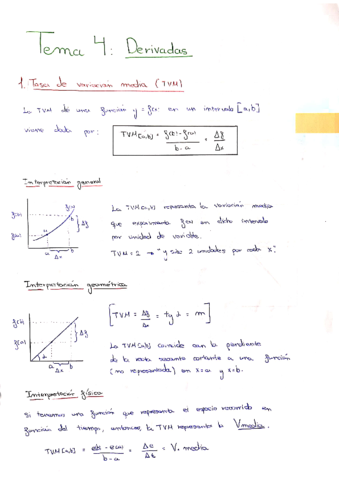 Tema 4: Derivadas
1. Tasa de variación media (TVM)
La TVM de una función y = f(x) en un intervalo [a,b]
viene dada por: TVM[a,b] = f(b)-f(a) / b-a = Δf / Δx
Interpretación general
f(x)
f(b)
f(a)
Δf
a b
Δx
La TVM[a,b] representa la variación media
que experimenta f(x) en dicho intervalo
por unidad de variable.
TVM = 2 → "y sube 2 unidades por cada x"
Interpretación geométrica
f(b)
f(a)
Δf
a b
Δx
[TVM = Δf / Δx = tg α = m]
La TVM [a,b] coincide con la pendiente
de la recta secante cortante a una función
(no representada) en x=a y x=b.
Interpretación física
Si tenemos una función que representa el espacio recorrido en
función del tiempo, entonces, la TVM representa la Vmedia.
TVM [a,b] = e(b) - e(a) / b - a = Δe / Δt = V. media